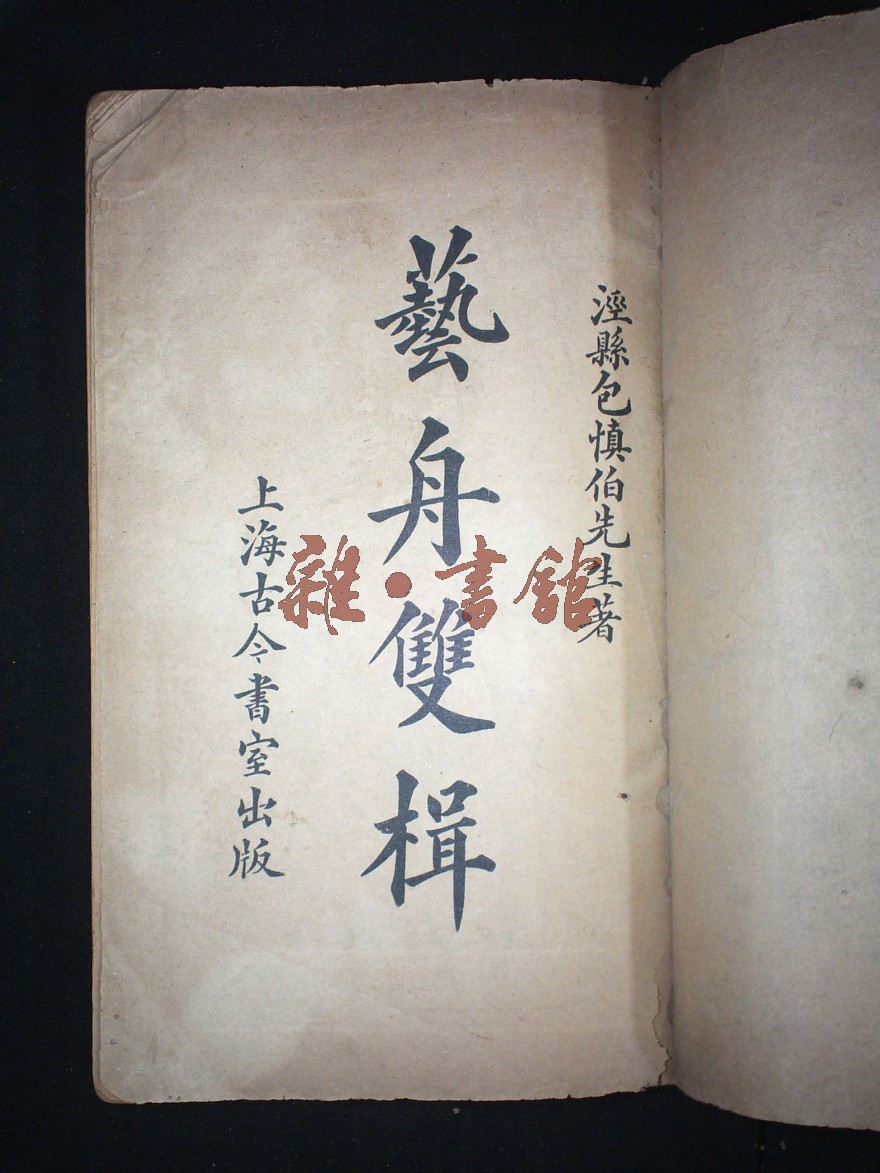 涇縣包慎伯先生著
藝舟雙楫
上海古今書室出版
雜·書館